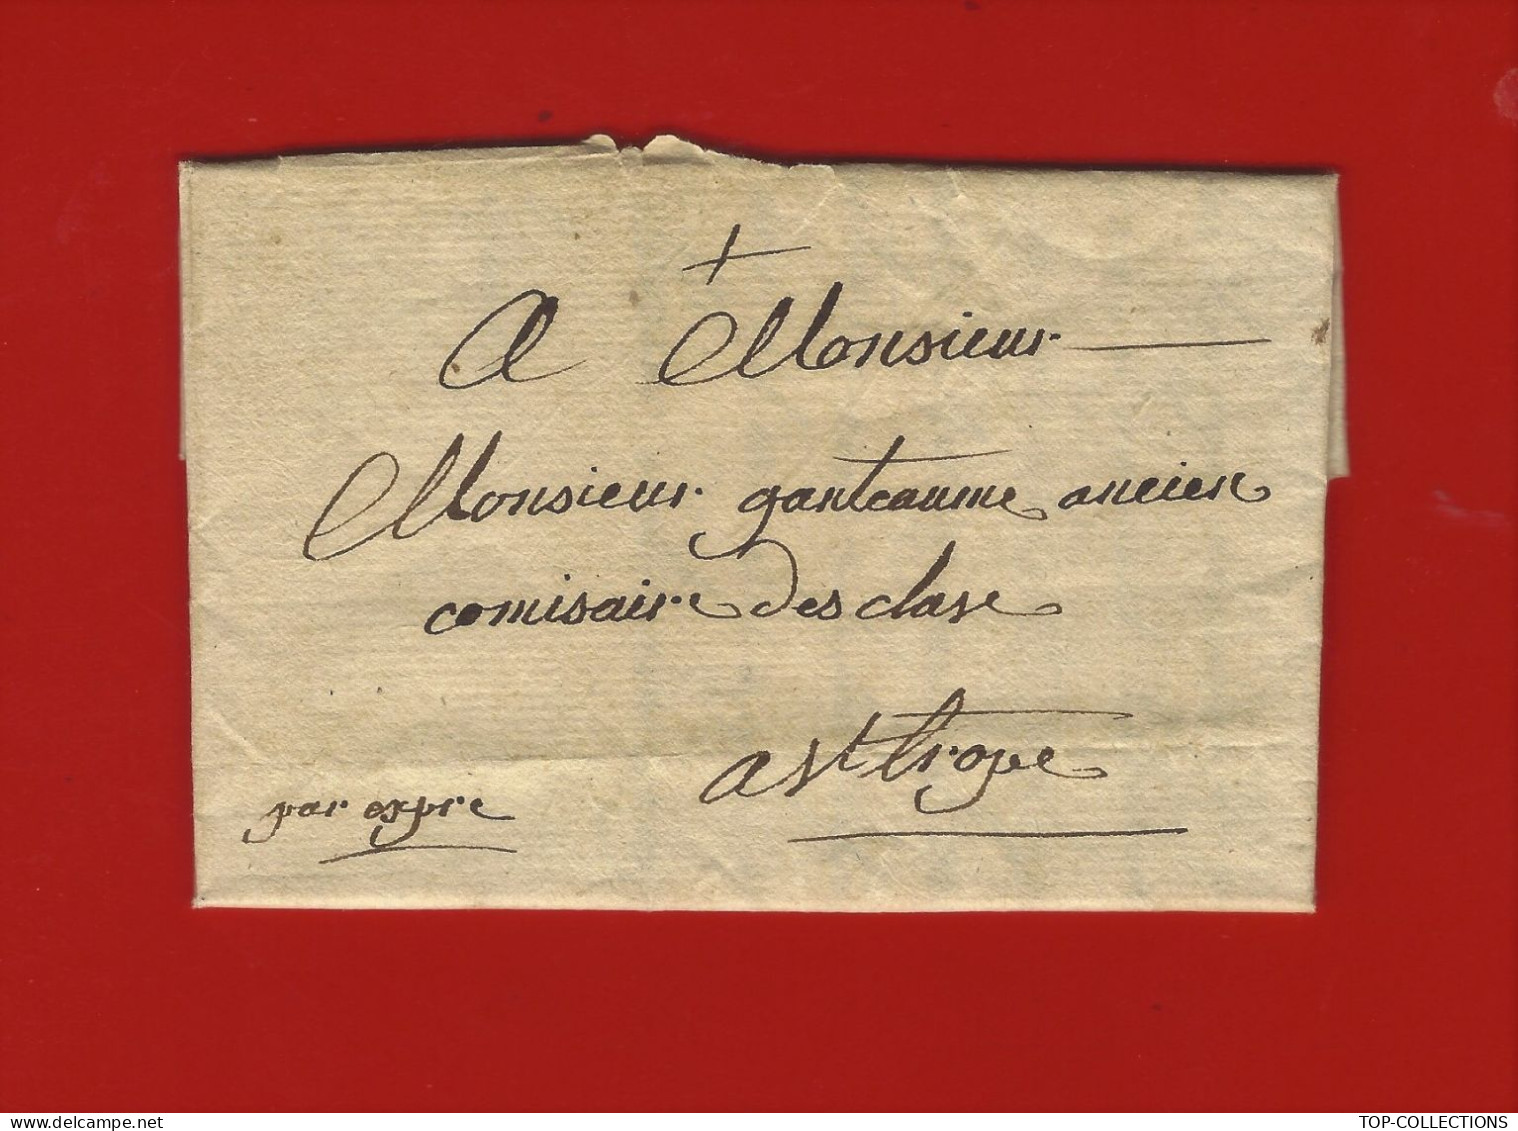 +
A Monsieur
Monsieur ganteaume ancien
comisaire des clase
a St trope
par expre
TOP-COLLECTIONS